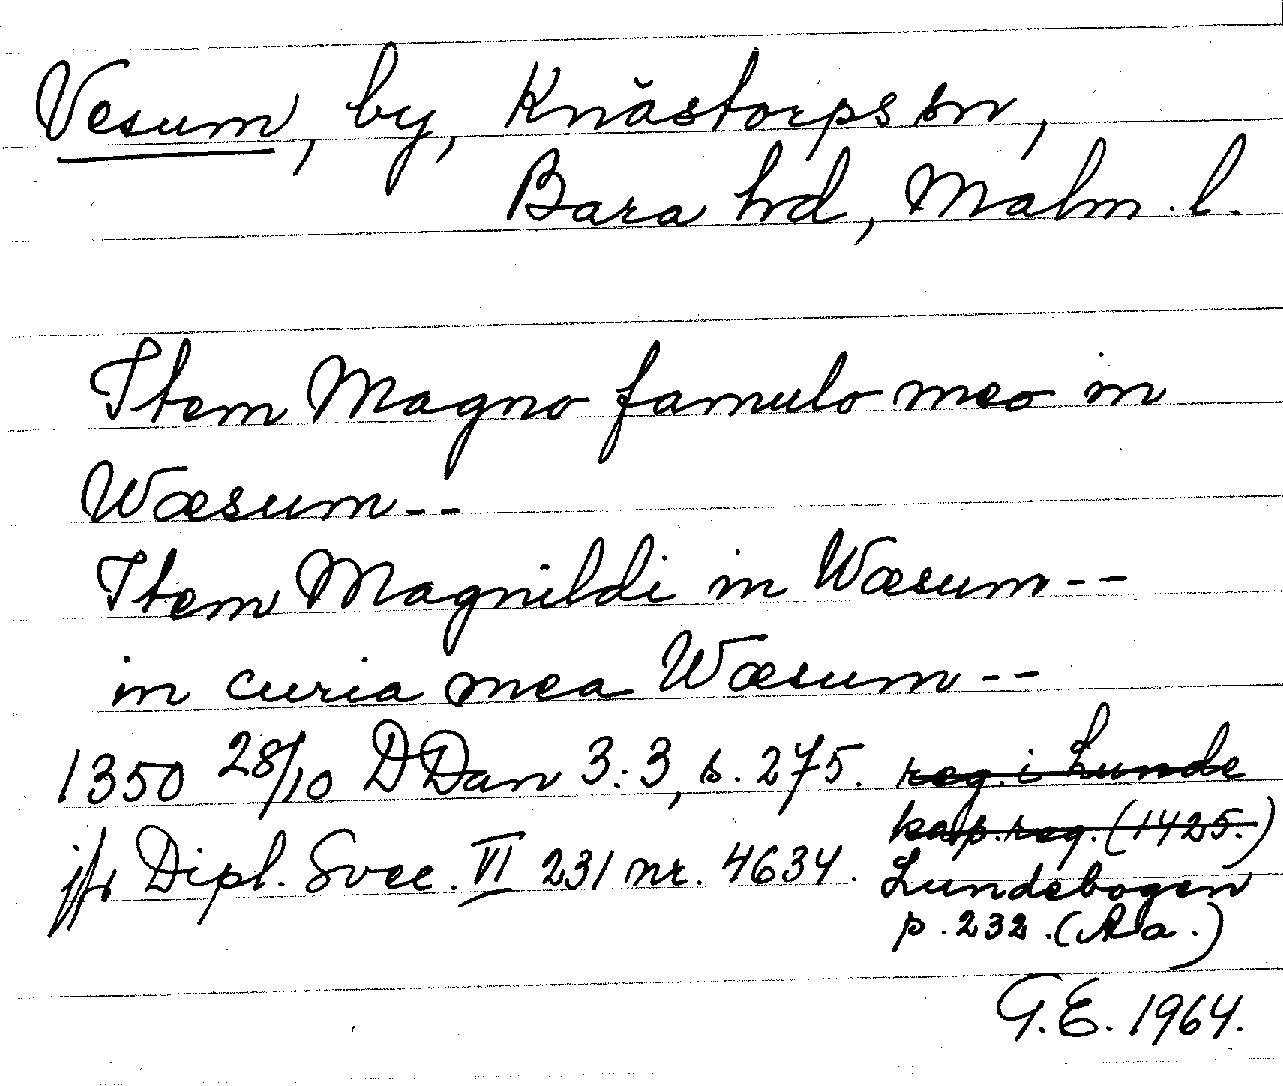 Vesum, by, Knästorps sn,
Bara hd, Malm. l.
Item Magno famulo meo in
Wæsum--
Item Magnildi in Wæsum--
in curia mea Wæsum--
1350 28/10 DDan 3:3, s. 275. reg. i Lunde
kap. reg. (1425.)
jfr Dipl. Svec. VI 231 nr. 4634. Lundebogen
p. 232. (Aa.)
G.E. 1964.